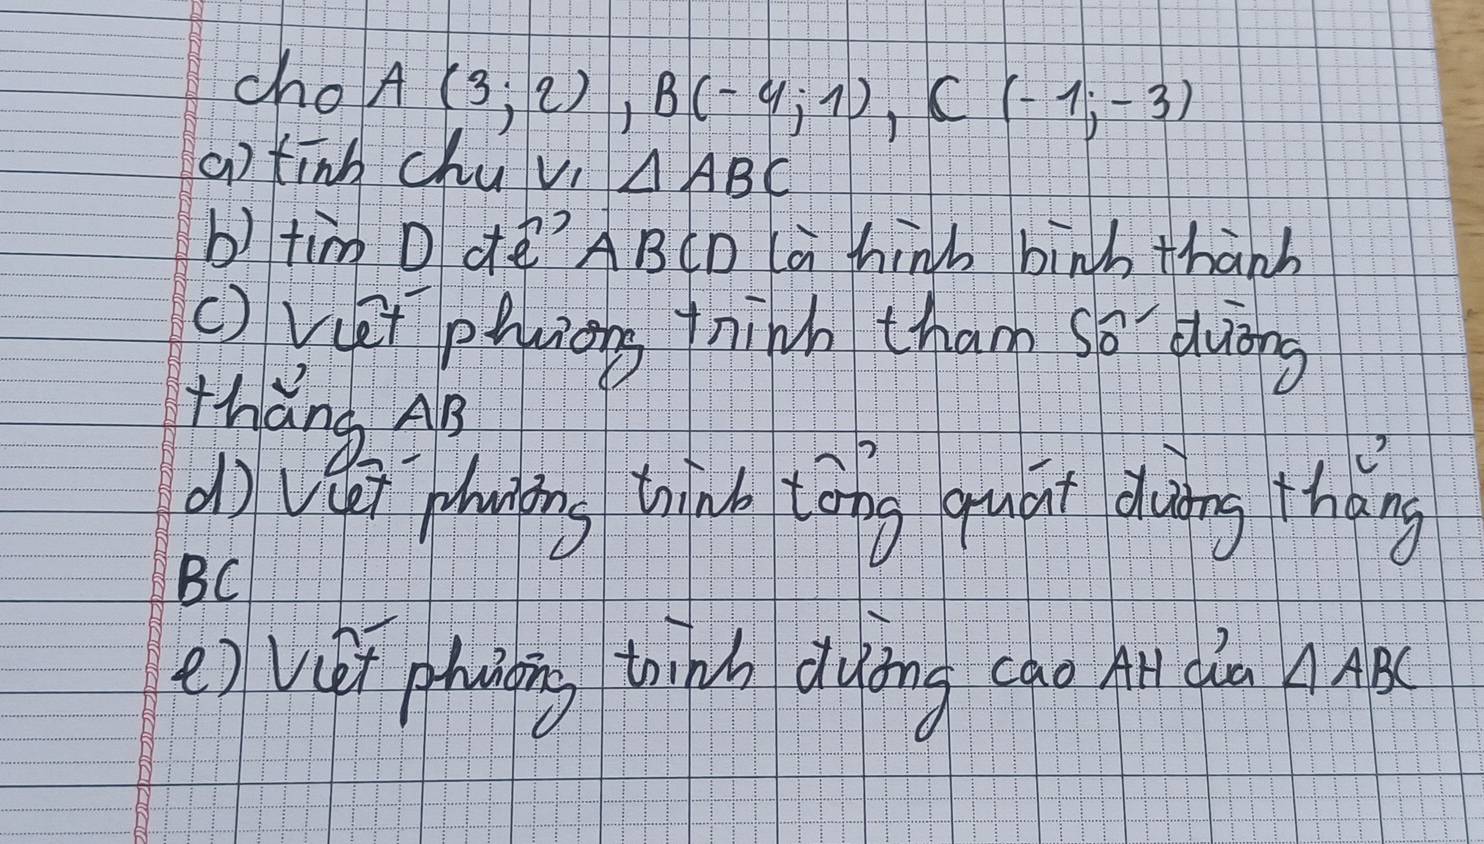 cho A (3; 2), B(-4; 1), C (-1; -3)
a) tính chu vi Δ ABC
b) tìm D để ABCD là hình bình thành
c) Viết phương trình tham số đường
thẳng AB
d) Viết phương trình tổng quát đường thẳng
BC
e) Viết phương trình đường cao AH của Δ ABC